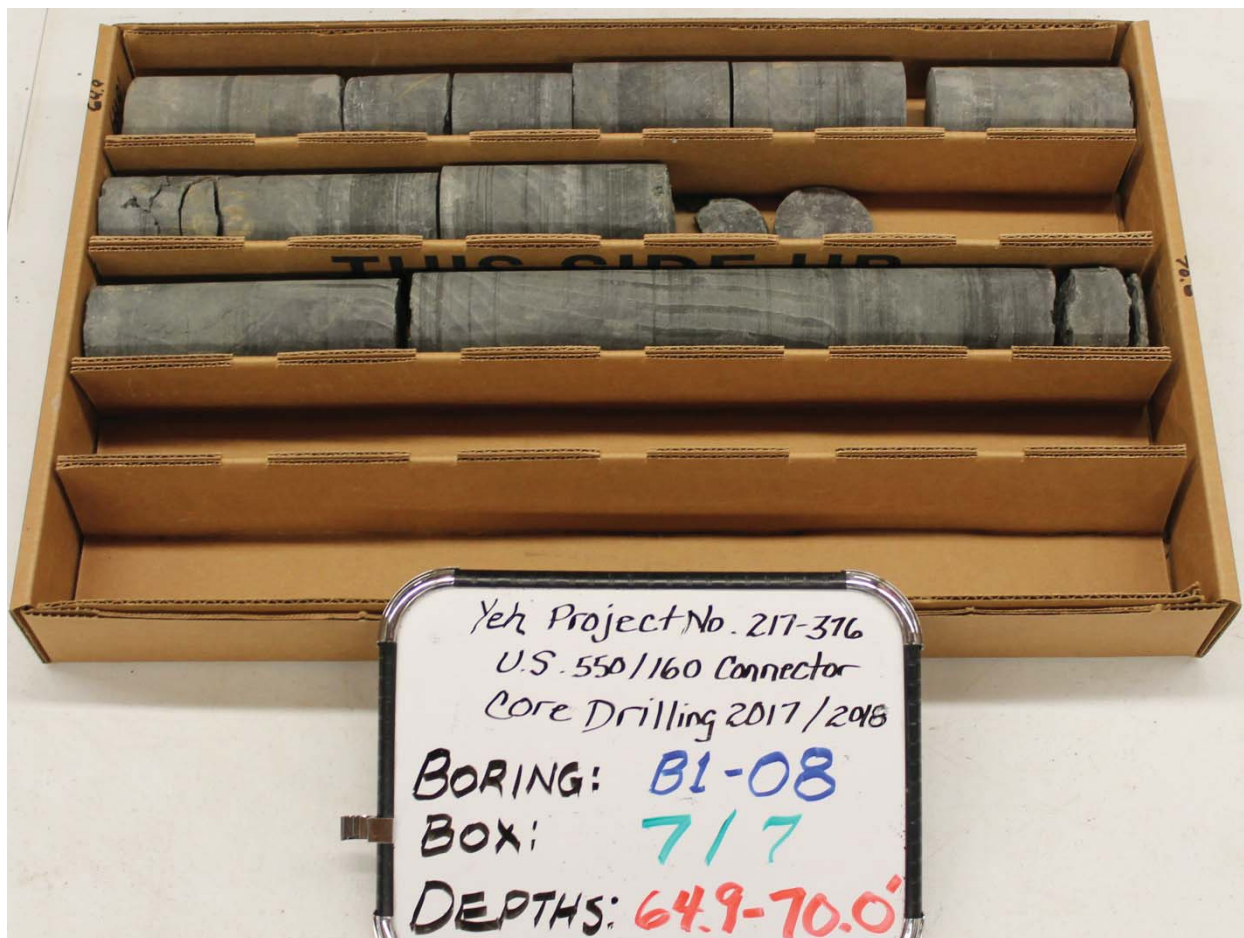 64.9
THIS SIDE UP
70.0
Yeh Project No. 217-376
U.S. 550/160 Connector
Core Drilling 2017/2018
BORING: B1-08
BOX: 7/7
DEPTHS: 64.9-70.0'